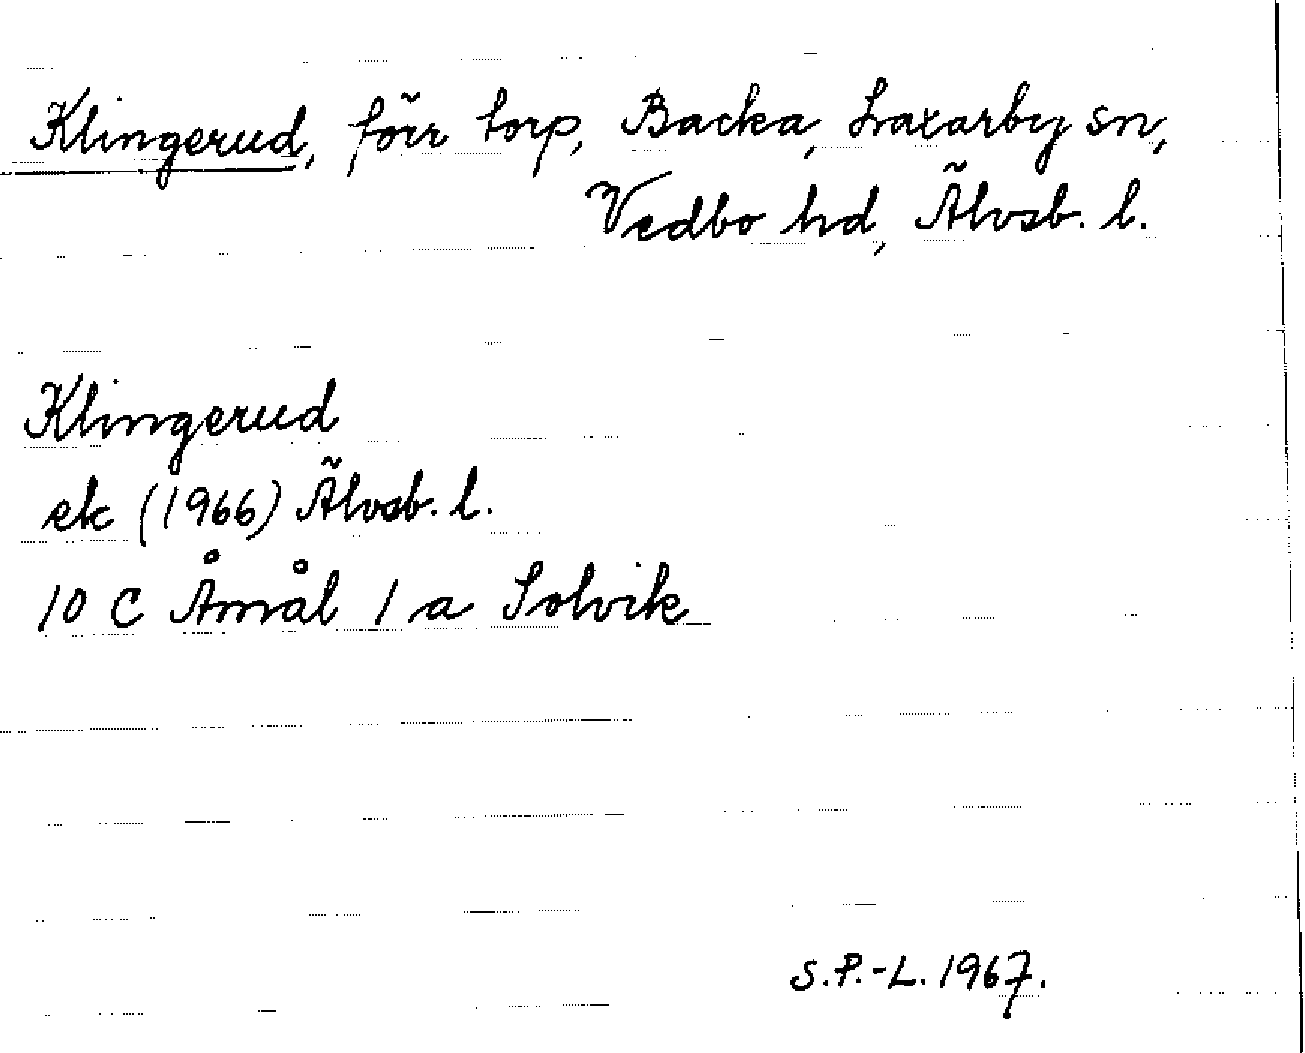 Klingerud, förr torp, Backa, Laxarby sn,
Vedbo hd, Älvsb. l.
Klingerud
ek (1966) Älvsb. l.
10 C Åmål 1 a Solvik
S.P.-L. 1967.